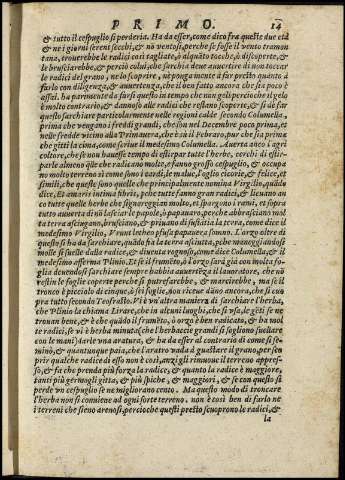 PRIMO. 14
& tutto il cespuglio si perderia. Ha da esser, come dico fra queste due età
& ne i giorni sereni secchi, & nō ventosi, perche se fusse il vento tramon
tana, trouerebbe le radici così tagliate, ò alquāto tocche, ò discoperte, &
le bruscierebbe, & perciò colui, che sarchia deue auuertire di non toccar
le radici del grano, ne lo scoprire, ne ponga mente à far presto quanto à
farlo con diligenza, & auuertenza, che il ben fatto ancora che sia poco è
assai. ha parimente da farsi questo in tempo che non geli perche il gelo
è molto contrario, & dannoso alle radici che restano scoperte, & si dè far
questo sarchiare particolarmente nelle regioni calde secondo Columella,
prima che vengano i freddi grandi, che sia nel Decembre poco prima, et
nelle fredde vicino alla Primauera, che è sia il Febraro, pur che sia prima
che gitti la cima, come scriue il medesimo Columella. Auerta anco l'agri
coltore, che se non hauesse tempo di estirpar tutte l'herbe, cerchi di estir-
parle almeno q̄lle che radicano molto, e fanno grosso cespuglio, & occupa
no molto terreno si come sono i cardi, le malue, l'oglio cicorie, & felice, et
simili, che queste sono quelle che principalmente nomina Virgilio, quādo
dice, Et amaris intiba fibris, poi che tutte fanno gran radici, & lieuano an
co tutte quelle herbe che signoreggian molto, et spargono i rami, et sopra
tutto auuerta di nō lasciar le papole, ò papauaro, perche abbrasciano mol
ta terra asciugano, brusciano, e priuano di sustātia la terra, come dice il
medesimo Virgilio, Vrunt letheo ꝑfusa papauera somno. L'orzo oltre di
questo si ha da sarchiare, quādo fia la terra asciutta, ꝑche maneggiandosi
molle si suelle dalla radice, & diuenta rognoso, come dice Columella, & il
medesimo afferma Plinio. Et se il frumēto, ò l'orzo sarà già con molta fo
glia deuendosi sarchiare sempre habbia auuertēza il lauoratore, che nō
restin le foglie coperte perche si putrefarebbe, & marcirebbe, ma se il
tronco è picciolo di cinque, ò sei foglie, non riceue dāno ancora, che si cuo
pra tutto secondo Teofrasto. Vi è vn'altra maniera di sarchiare l'herba,
che Plinio la chiama Litrare, che in alcuni luoghi, che si vsa, le gēti se ne
tronan bene, & è che quādo il frumēto, ò orzo è ben radicato, & ha mol
te radici, se vi è herba minuta (che l'herbaccie grandi si sogliono suellare
con le mani) darle vna aratura, & ha da esser al contrario di come si se-
minò, & quantunque paia, che l'aratro vada à guastare il grano, per sco
prir qualche radice di esso non è così, anzi gli rinnoue il terreno appres-
so, & fa che prenda più forza la radice, & quanto la radice è maggiore,
tanti più germogli gitta, & più spiche, & maggiori, & se con questo si
perde vn cespuglio se ne migliorano cento. Ma questo modo di troncare
l'herba non si conuiene ad ogni sorte terreno. non è così ben di farlo ne
i terreni che sieno arenosi. percioche questi presto scuoprono le radici, &
la